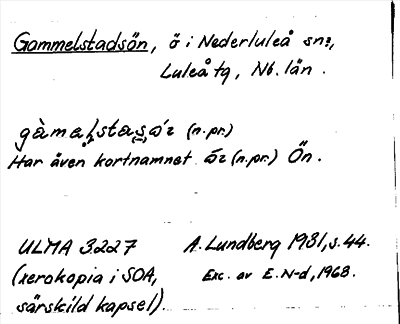 Gammelstadsön, ö i Nederluleå sn:,
Luleå tg, Nb. län.
(n.pr.)
Har även kortnamnet (n.pr.) Ön.
ULMA 3227 A. Lundberg 1931, s. 44.
(xerokopia i SOA, Exc. av E. N-d, 1968.
särskild kapsel).